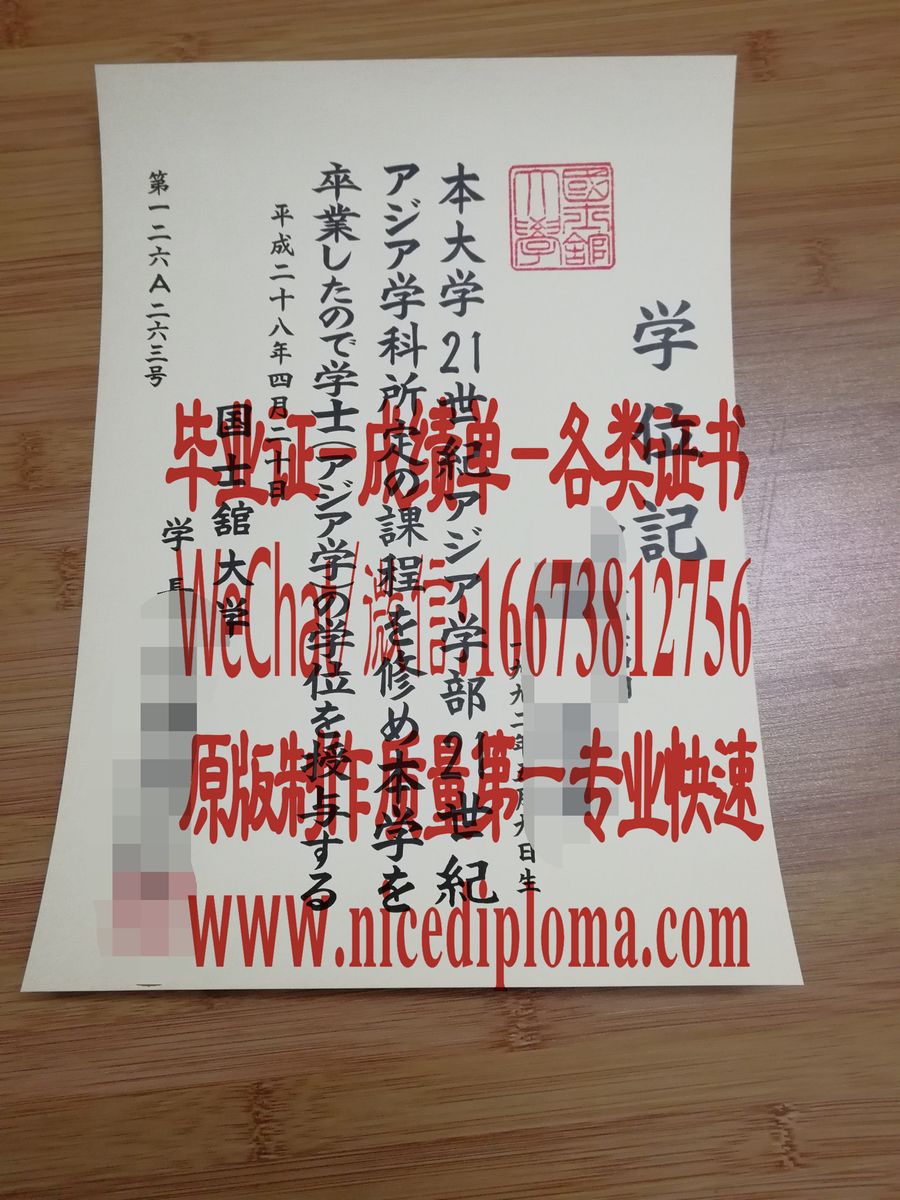 学位記
一九九二年五月九日生
本大学21世紀アジア学部21世紀
アジア学科所定の課程を修め本学を
卒業したので学士(アジア学)の学位を授与する
平成二十八年四月二十日
国士舘大学
学長
第一二六A二六三号
國士舘大學
毕业证-成绩单-各类证书
WeChat/微信:16673812756
原版制作质量第一专业快速
www.nicediploma.com